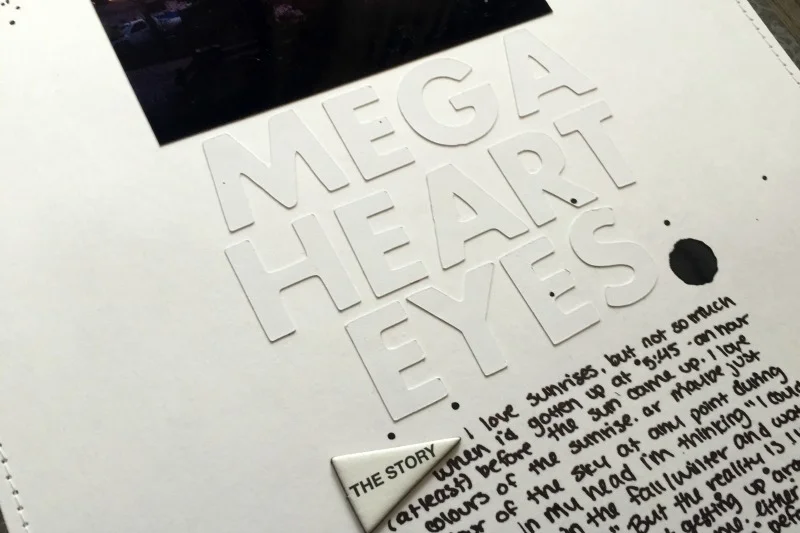 MEGA
HEART
EYES
THE STORY
I love sunrises, but not so much
when i'd gotten up at 5:45 - an hour
(at least) before the sun came up. I love
colours of the sunrise. or maybe just
of the sky at any point during
in my head I'm thinking "I
in the fall/winter and
" But the reality is
getting up
either